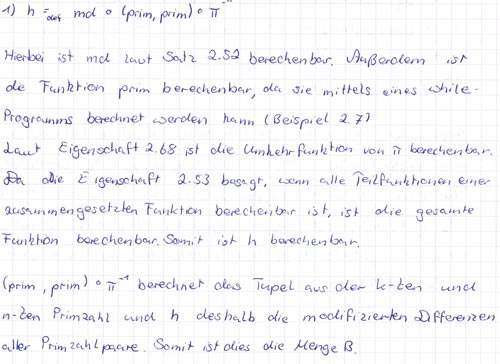 1) h =def md ∘ (prim, prim) ∘ π⁻¹
Hierbei ist md laut Satz 2.52 berechenbar. Außerdem ist
die Funktion prim berechenbar, da sie mittels eines while-
Programms berechnet werden kann (Beispiel 2.7)
Laut Eigenschaft 2.68 ist die Umkehrfunktion von π berechenbar.
Da die Eigenschaft 2.53 besagt, wenn alle Teilfunktionen einer
zusammengesetzten Funktion berechenbar ist, ist die gesamte
Funktion berechenbar. Somit ist h berechenbar.
(prim, prim) ∘ π⁻¹ berechnet das Tupel aus der k-ten und
n-ten Primzahl und h deshalb die modifizierten Differenzen
aller Primzahlpaare. Somit ist dies die Menge B.